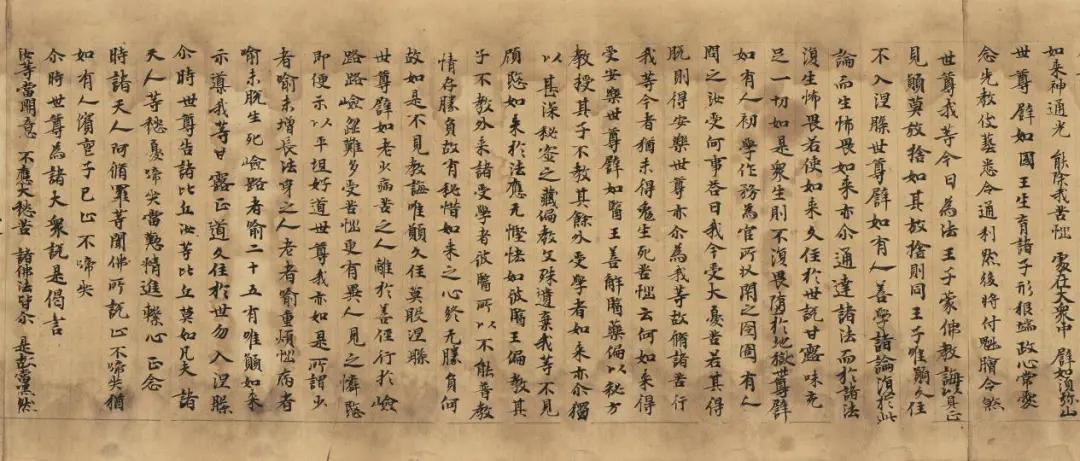 如来神通光 能除我苦惱 處在大衆中 譬如湏弥山
世尊譬如國王生育諸子形㒵端政心常愛
念先教伎藝悉令通利然後將付魁膾令煞
世尊我等今日為法王子蒙佛教誨以具正
見願莫放捨如其放捨則同王子唯願久住
不入涅槃世尊譬如有人善學諸論復於此
論而生怖畏如来亦尒通達諸法而於諸法
復生怖畏若使如来久住於世説甘露味充
足一切如是衆生則不復畏墮於地獄世尊譬
如有人初學作務為官所收閇之囹圄有人
問之汝受何事荅曰我今受大憂苦若其得
脱則得安樂世尊亦尒為我等故脩諸苦行
我等今者猶未得免生死苦惱云何如来得
受安樂世尊譬如醫王善解醫藥偏以秘方
教授其子不教其餘外受學者如来亦尒獨
以甚深秘密之藏偏教文殊遺棄我等不見
顧愍如来於法應无慳恡如彼醫王偏教其
子不教外来諸受學者彼醫所以不能善教
情存勝負故有秘惜如来之心終无勝負何
故如是不見教誨唯願久住莫般涅槃
世尊譬如老少病苦之人離於善徑行於嶮
路路嶮難多受苦惱更有異人見之憐愍
即便示以平坦好道世尊我亦如是所謂少
者喻未增長法身之人老者喻重煩惱病者
喻未脱生死嶮路者喻二十五有唯願如来
示導我等甘露正道久住於世勿入涅槃
尒時世尊告諸比丘汝等比丘莫如凡夫諸
天人等愁憂啼哭當懃精進繫心正念
時諸天人阿脩羅等聞佛所説止不啼哭猶
如有人喪子已止不啼哭
尒時世尊為諸大衆説是偈言
汝等當開意 不應大愁苦 諸佛法皆尒 是故當默然